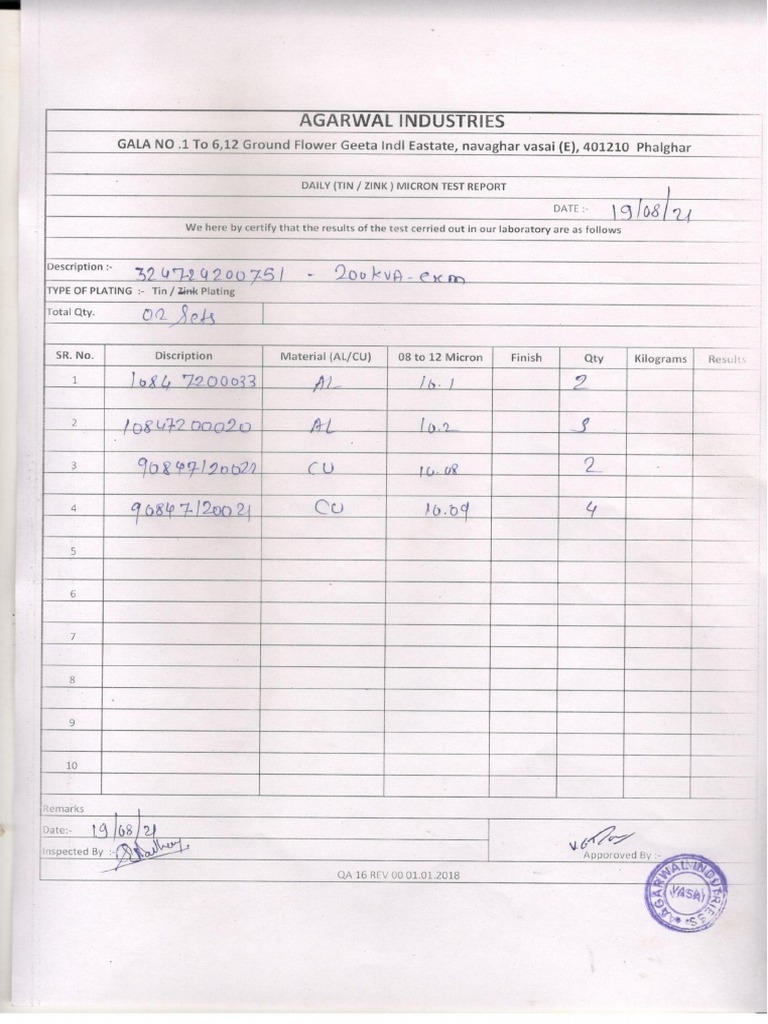 AGARWAL INDUSTRIES
GALA NO .1 To 6,12 Ground Flower Geeta Indl Eastate, navaghar vasai (E), 401210 Phalghar
DAILY (TIN / ZINK ) MICRON TEST REPORT
DATE :- 19/08/21
We here by certify that the results of the test cerried out in our laboratory are as follows
Description :- 324724200751 - 200kVA-
TYPE OF PLATING :- Tin / Zink Plating
Total Qty. 02 Sets
SR. No. Discription Material (AL/CU) 08 to 12 Micron Finish Qty Kilograms Results
1 10847200033 AL 10.1 2
2 10847200020 AL 10.2
3 CU 10.08 2
4 90847120021 CU 10.09 4
5
6
7
8
9
10
Remarks
Date:- 19/08/21
Inspected By :-
Apporoved By :-
QA 16 REV 00 01.01.2018
AGARWAL INDUSTRIES
VASAI